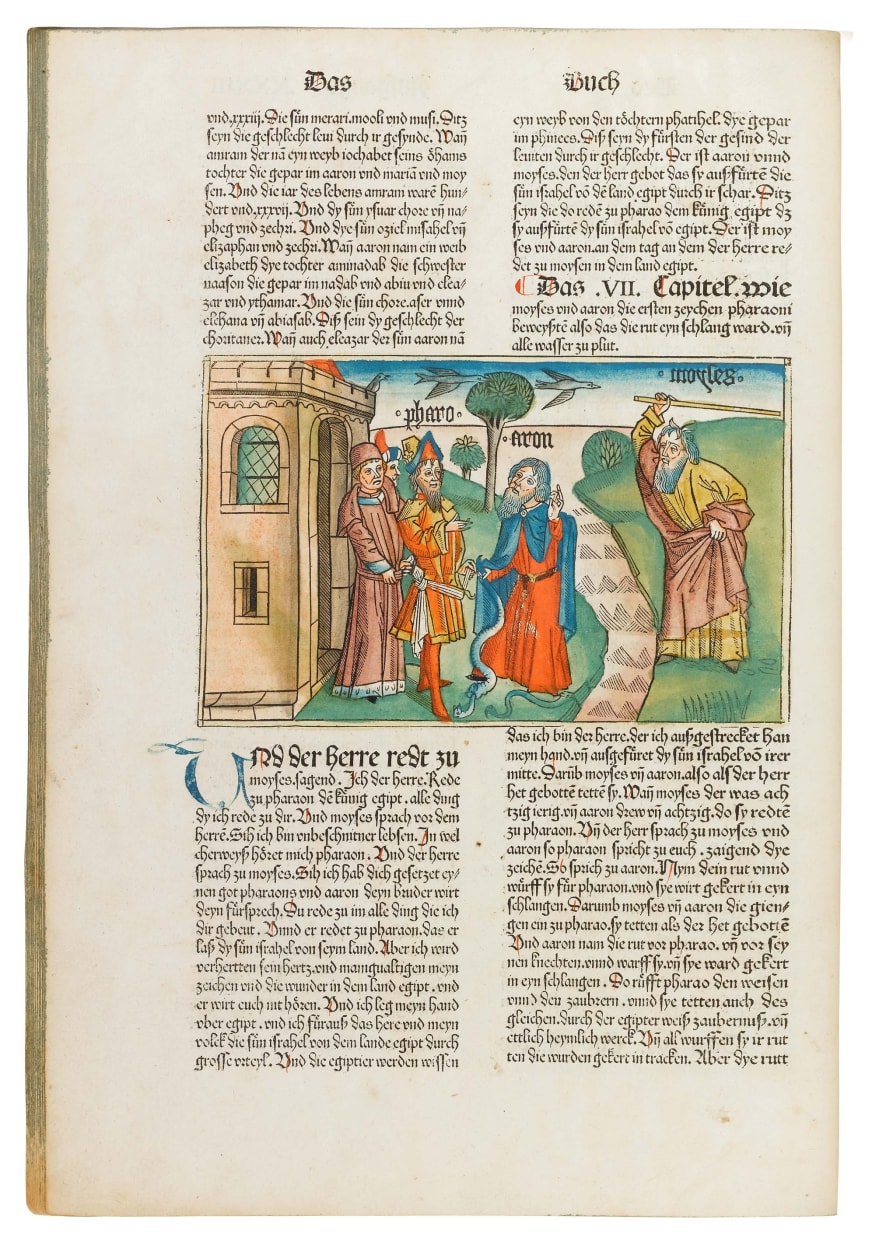 Das Buch
vnd.xxxiij. Die sün merari.mooli vnd musi. Ditz
seyn die geschlecht leui durch ir gesynde. Wañ
amram der nā eyn weyb iochabet seins öhams
tochter die gepar im aaron vnd mariā vnd moy
sen. Vnd die iar des lebens amrani warē hun/
dert vnd.xxxvij. Vnd dy sün ysuar chore vñ na/
pheg vnd zechri. Vnd dye sün oziel misahel vñ
elizaphan vnd zechri. Wañ aaron nam ein weib
elizabeth dye tochter aminadab die schwester
naason die gepar im nadab vnd abiu vnd elea/
zar vnd ythamar. Vnd die sün chore.aser vnnd
elchana vñ abiasab. Diß sein dy geschlecht der
choritaner. Wañ auch eleazar der sün aaron nā
eyn weyb von den töchtern phatihel. dye gepar
im phinees. Diß seyn dy fürsten der gesind der
leuiten durch ir geschlecht. Der ist aaron vnnd
moyses.den der herr gebot das sy außfürtē die
sün israhel vō dē land egipt durch ir schar. Ditz
seyn die do redē zu pharao dem künig egipt dz
sy außfürtē dy sün israhel vō egipt. Der ist moy
ses vnd aaron.an dem tag an dem der herre re/
det zu moysen in dem land egipt.
Das .VII. Capitel. wie
moyses vnd aaron die ersten zeychen pharaoni
beweyßtē also das die rut eyn schlang ward.vñ
alle wasser zu plut.
pharo
aron
moyses
VNd der herre redt zu
moyses.sagend. Ich der herre. Rede
zu pharaon dē künig egipt. alle ding
dy ich rede zu dir. Vnd moyses sprach vor dem
herrē. Sih ich bin vnbeschnitner lebsen. In wel
cherweyß höret mich pharaon. Vnd der herre
sprach zu moyses. Sih ich hab dich gesetzet ey/
nen got pharaons vnd aaron deyn bruder wirt
deyn fürsprech. Du rede zu im alle ding die ich
dir gebeut. Vnnd er redet zu pharaon.das er
laß dy sün israhel von seym land. Aber ich wird
verhertten sein hertz.vnd manigualtigen meyn
zeichen vnd die wunder in dem land egipt. vnd
er wirt euch nit hören. Vnd ich leg meyn hand
vber egipt. vnd ich fürauß das here vnd meyn
volck die sün israhel von dem lande egipt durch
grosse vrteyl. Vnd die egiptier werden wissen
das ich bin der herre.der ich außgestrecket han
meyn hand.vñ außgefüret dy sün israhel vō irer
mitte. Darūb moyses vñ aaron.also als der herr
het gebottē tettē sy. Wañ moyses der was ach
tzig ierig.vñ aaron drew vñ achtzig.do sy redtē
zu pharaon. Vñ der herr sprach zu moyses vnd
aaron so pharaon spricht zu euch. zaigend dye
zeichē. So sprich zu aaron. Nym dein rut vnnd
würff sy für pharaon.vnd sye wirt gekert in eyn
schlangen. Darumb moyses vñ aaron die gien/
gen ein zu pharao.sy tetten als der het gebottē
Vnd aaron nam die rut vor pharao. vñ vor sey
nen knechten.vnnd warff sy.vñ sye ward gekert
in eyn schlangen. Do rüfft pharao den weisen
vnnd den zaubrern. vnnd sye tetten auch des
gleichen.durch der egipter weiß zaubernuß.vñ
ettlich heymlich werck. Vñ all wurffen sy ir rut
ten die wurden gekert in tracken. Aber dye rutt